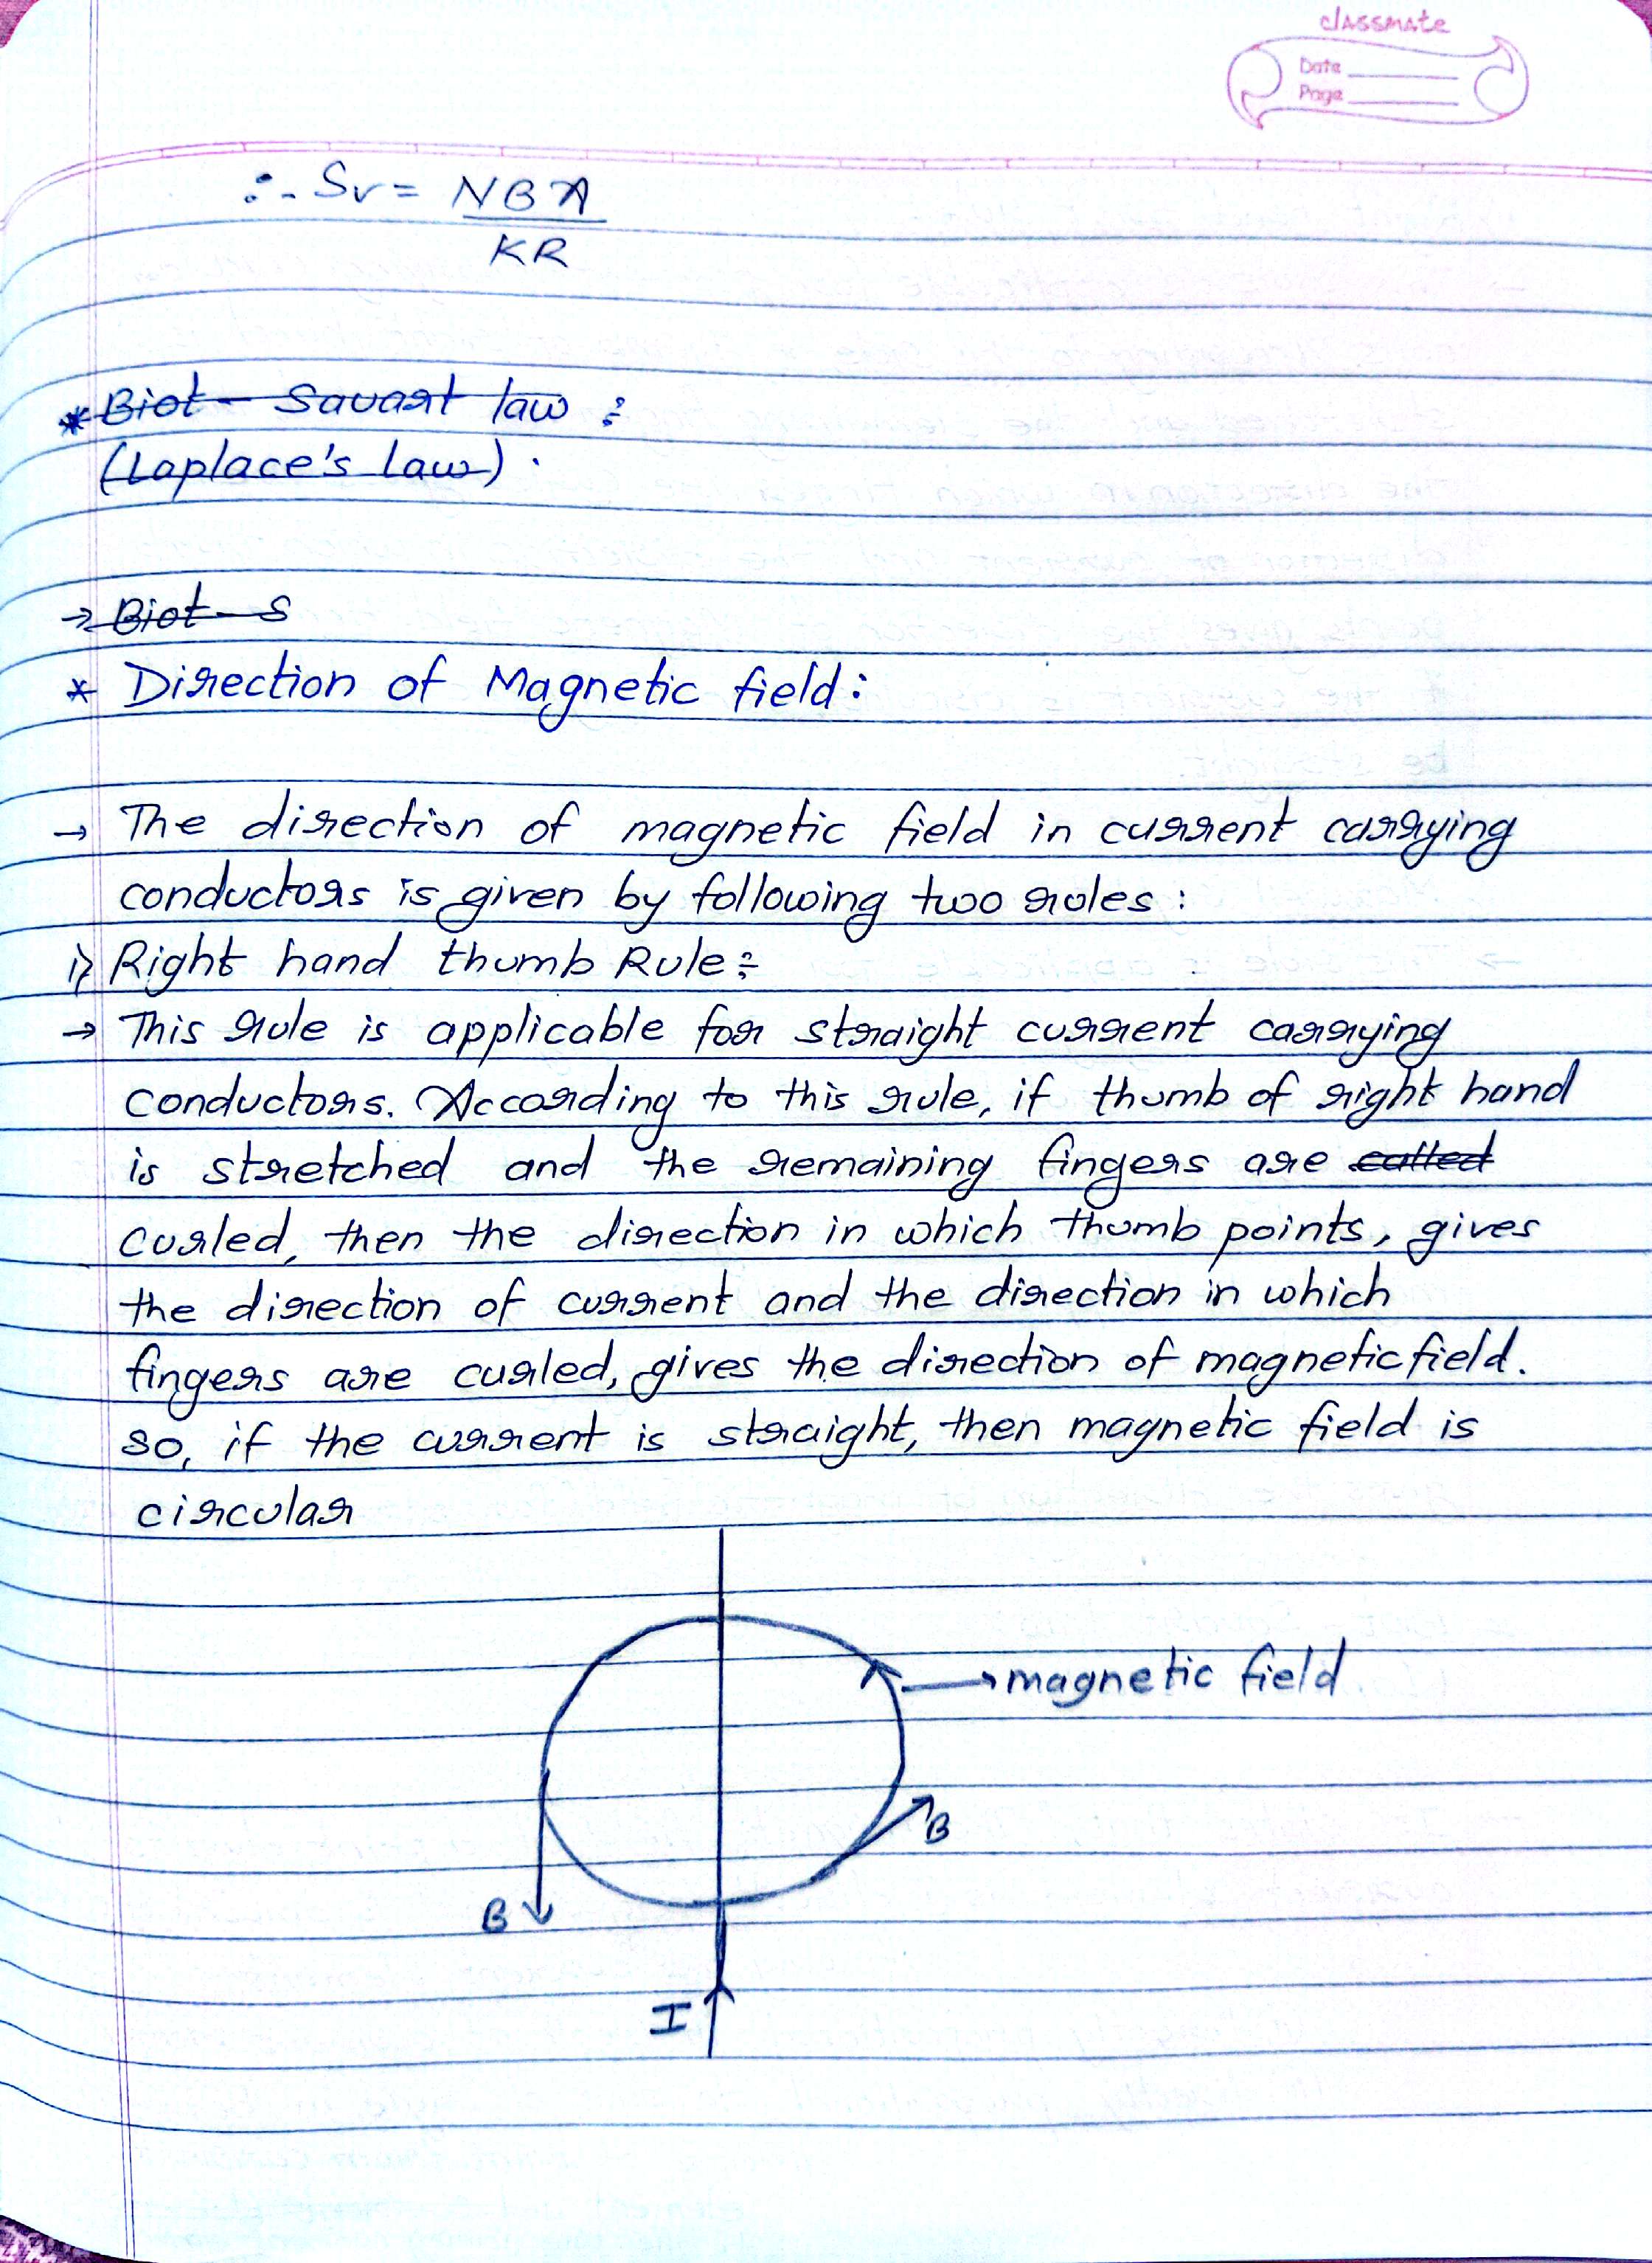 classmate
Date
Page
∴ Sv = NBA
KR
* Biot - Savart law :
(Laplace's law).
→ Biot - S
* Direction of Magnetic field:
→ The direction of magnetic field in current carrying
conductors is given by following two rules :
i) Right hand thumb Rule :
→ This rule is applicable for straight current carrying
conductors. According to this rule, if thumb of right hand
is stretched and the remaining fingers are called
curled, then the direction in which thumb points, gives
the direction of current and the direction in which
fingers are curled, gives the direction of magnetic field.
so, if the current is straight, then magnetic field is
circular
→ magnetic field
B
B
I